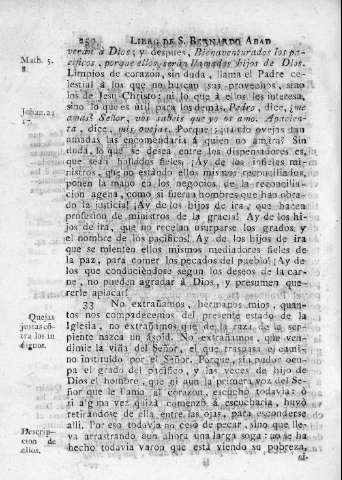 250 LIBRO DE S. BERNARDO ABAD
verán a Dios; y despues, Bienaventurados los pa-
Math. 5. cificos, porque ellos serán llamados hijos de Dios.
8. Limpios de corazon, sin duda, llama el Padre ce-
lestial á los que no buscan sus provechos, sino
los de Jesu-Christo; ni lo que á ellos les interesa,
Johan. 21 sino lo que es útil para los demás. Pedro, dice, ¿me
17. amas? Señor, vos sabeis que yo os amo. Apacien-
ta, dice, mis ovejas. Porque ¿quándo ovejas tan
amadas las encomendaria á quien no amára? Sin
duda, lo que se desea entre los dispensadores es,
que sean hallados fieles. ¡Ay de los infieles mi-
nistros, que no estando ellos mismos reconciliados,
ponen la mano en los negocios de la reconcilia-
cion agena, como si fueran hombres que han obra-
do la justicia! ¡Ay de los hijos de ira, que hacen
profesion de ministros de la gracia! ¡Ay de los hi-
jos de ira, que no recelan usurparse los grados, y
el nombre de los pacificos! ¡Ay de los hijos de ira
que se mienten ellos mismos mediadores fieles de
la paz, para comer los pecados del pueblo! ¡Ay de
los que conduciendose segun los deseos de la car-
ne, no pueden agradar á Dios, y presumen que-
rerle aplacar!
33 No extrañamos, hermanos mios, quan-
Quejas tos nos compadecemos del presente estado de la
justas có- Iglesia, no extrañamos que de la raza de la ser-
tra los in piente nazca un áspid. No extrañamos, que ven-
dignos. dimie la viña del Señor, el que traspasa el cami-
no instituido por el Señor. Porque, sin pudor ocu-
pa el grado del pacifico, y las veces de hijo de
Dios el hombre, que ni aun la primera voz del Se-
ñor que le llama al corazon, escuchó todavia: ó
si alguna vez quizá comenzó á escucharla, huyó
retirandose de ella entre las ojas, para esconderse
Descrip- alli. Por eso todavia no cesó de pecar, sino que lle-
cion de va arrastrando aun ahora una larga soga: no se ha
ellos. hecho todavia varon que está viendo su pobreza,